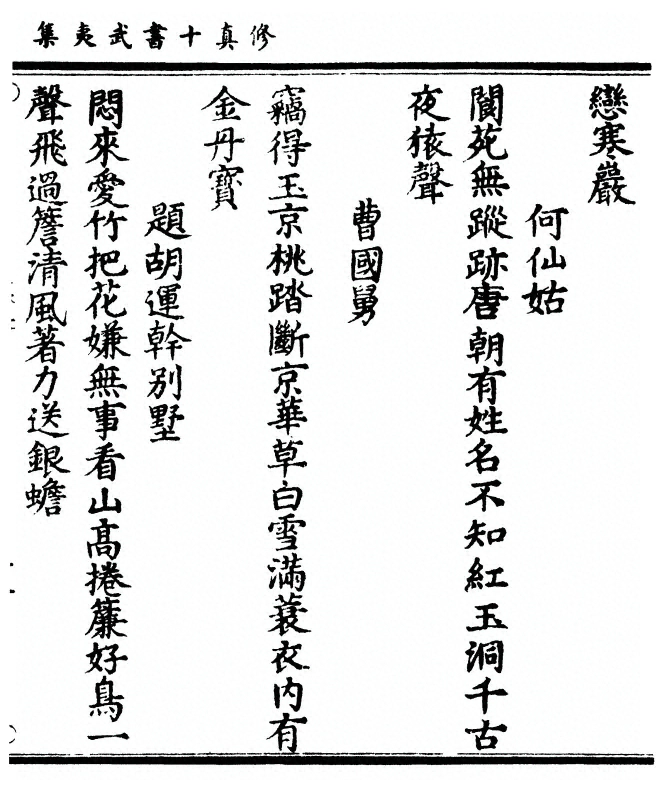 修真十書武夷集
戀寒巖
何仙姑
閬苑無蹤跡唐朝有姓名不知紅玉洞千古
夜猿聲
曹國舅
竊得玉京桃踏斷京華草白雪滿蓑衣內有
金丹寶
題胡運幹别墅
悶來愛竹把花嫌無事看山髙捲簾好鳥一
聲飛過簷清風著力送銀蟾